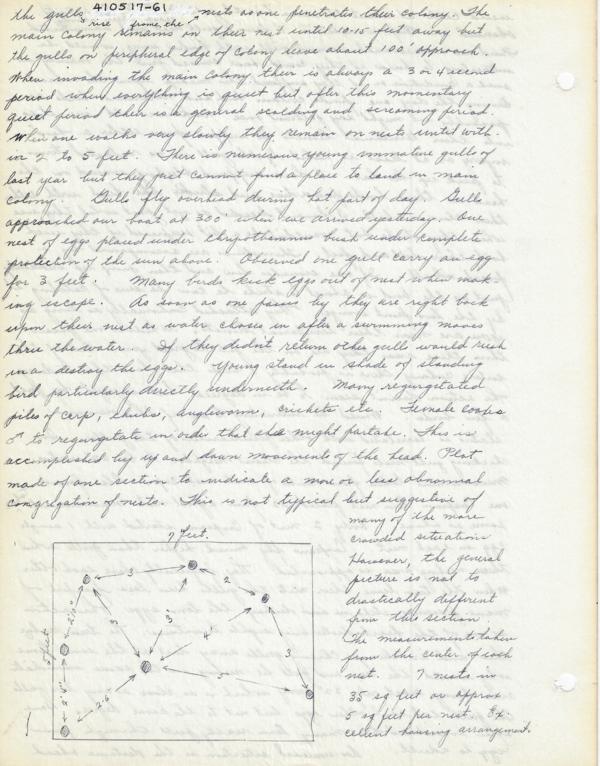 410517-61
the gulls rise from the nests as one penetrates their colony. The
main colony remains on their nest until 10-15 feet away but
the gulls on peripheral edge of colony leave about 100' approach.
When invading the main colony their is always a 3 or 4 second
period when everything is quiet but after this momentary
quiet period their is a general scolding and screaming period.
When one walks very slowly they remain on nests until with-
in 2 to 5 feet. There is numerous young immature gulls of
last year but they just cannot find a place to land in main
colony. Gulls fly overhead during hot part of day. Gulls
approached our boat at 300' when we arrived yesterday. One
nest of eggs placed under bush under complete
protection of the sun above. Observed one gull carry an egg
for 3 feet. Many birds kick eggs out of nest when mak-
ing escape. As soon as one passes by they are right back
upon their nest as water closes in after a swimming moves
thru the water. If they didn't return other gulls would rush
in a destroy the eggs. Young stand in shade of standing
bird particularly directly underneath. Many regurgitated
piles of carp, chubs, angleworm, crickets etc. Female coaxes
♂ to regurgitate in order that she might partake. This is
accomplished by up and down movements of the head. Plot
made of one section to indicate a more or less abnormal
congregation of nests. This is not typical but suggestive of
many of the more
crowded situation
However, the general
picture is not to
drastically different
from this section.
The measurements taken
from the center of each
nest. 7 nests in
35 sq feet or approx
5 sq feet per nest. Ex-
cellent housing arrangement.
7 feet.
3
2
2'10"
3
3'
4'
3
5 feet
5'
2'6"